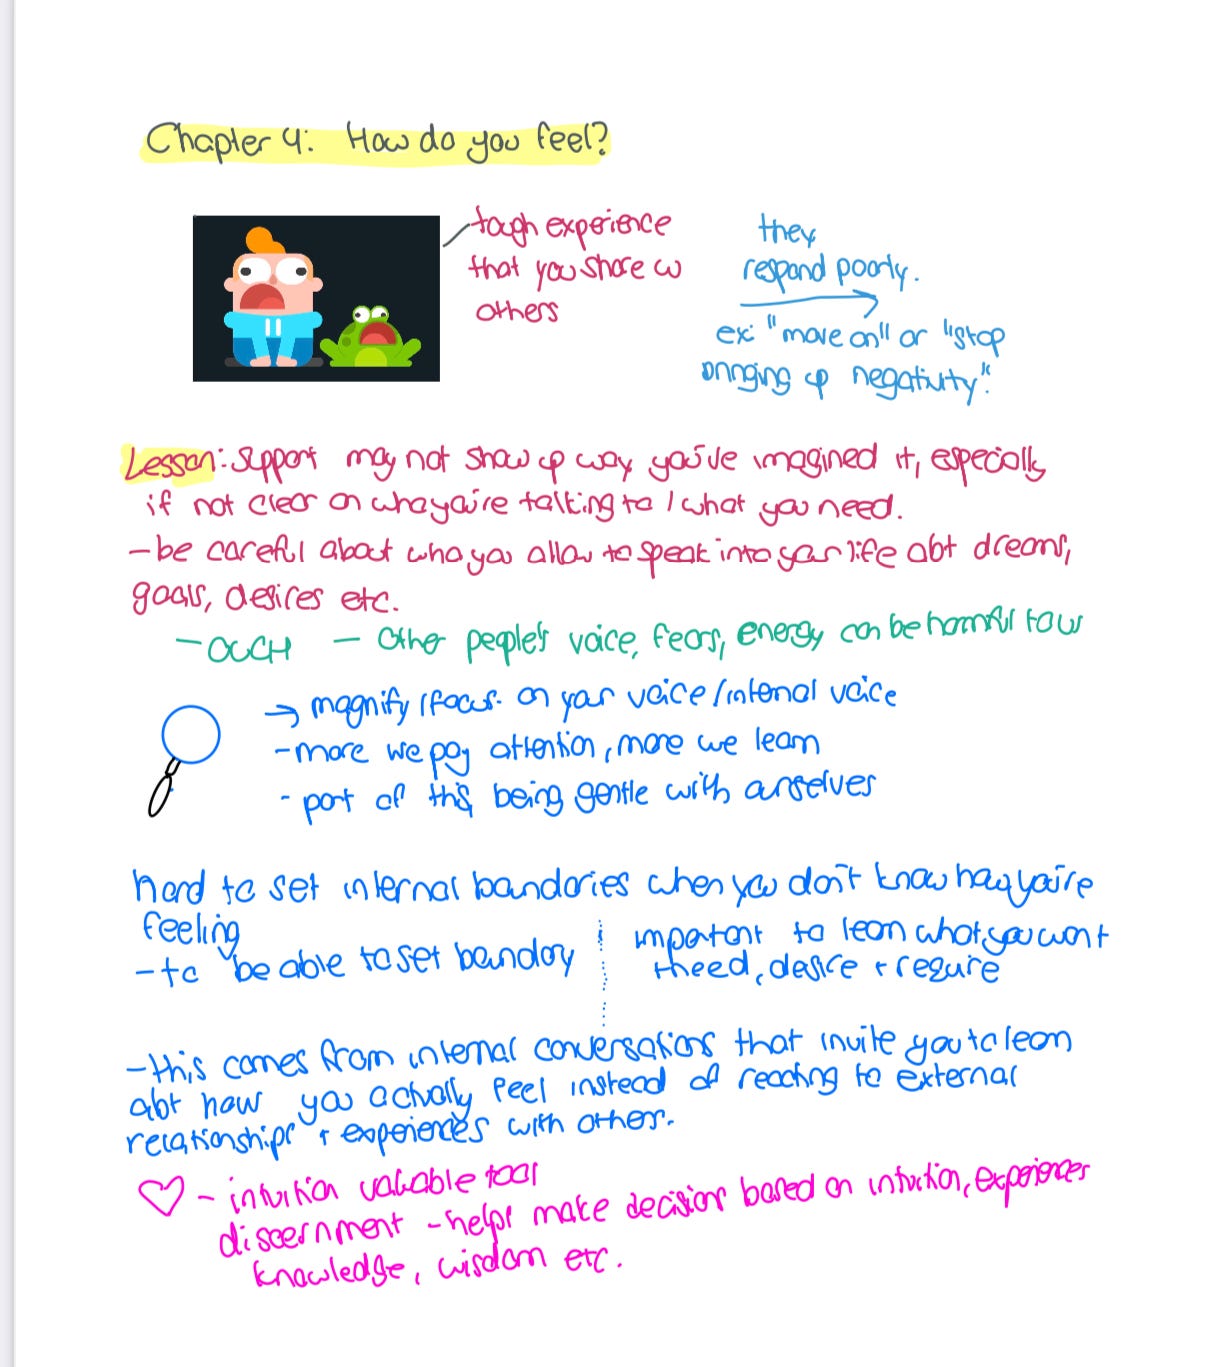 Chapter 4: How do you feel?
tough experience
that you share w
others
they
respond poorly.
ex: "move on" or "stop
bringing up negativity".
Lesson: Support may not show up way you've imagined it, especially
if not clear on who you're talking to / what you need.
- be careful about who you allow to speak into your life abt dreams,
goals, desires etc.
- OUCH - Other people's voice, fears, energy can be harmful to us
→ magnify / focus on your voice / internal voice
- more we pay attention, more we learn
- part of this, being gentle with ourselves
hard to set internal boundaries when you don't know how you're
feeling
- to be able to set boundary
important to learn what you want
+ need, desire + require
- this comes from internal conversations that invite you to learn
abt how you actually feel instead of reacting to external
relationships + experiences with others.
♡ - intuition valuable tool
discernment - helps make decisions based on intuition, experiences
knowledge, wisdom etc.